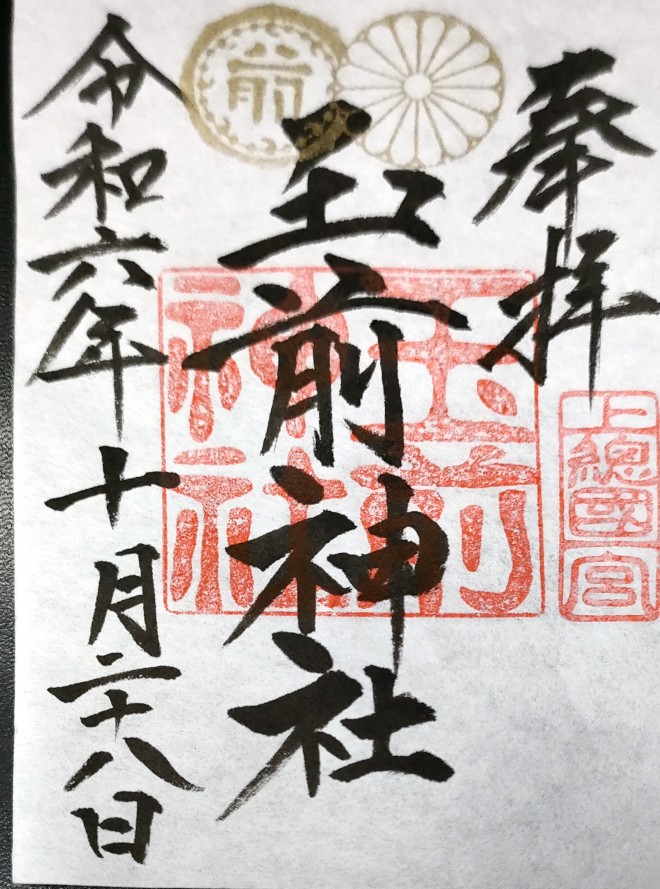 奉拝
上總國一宮
玉前神社
玉前神社
前
令和六年十月二十八日